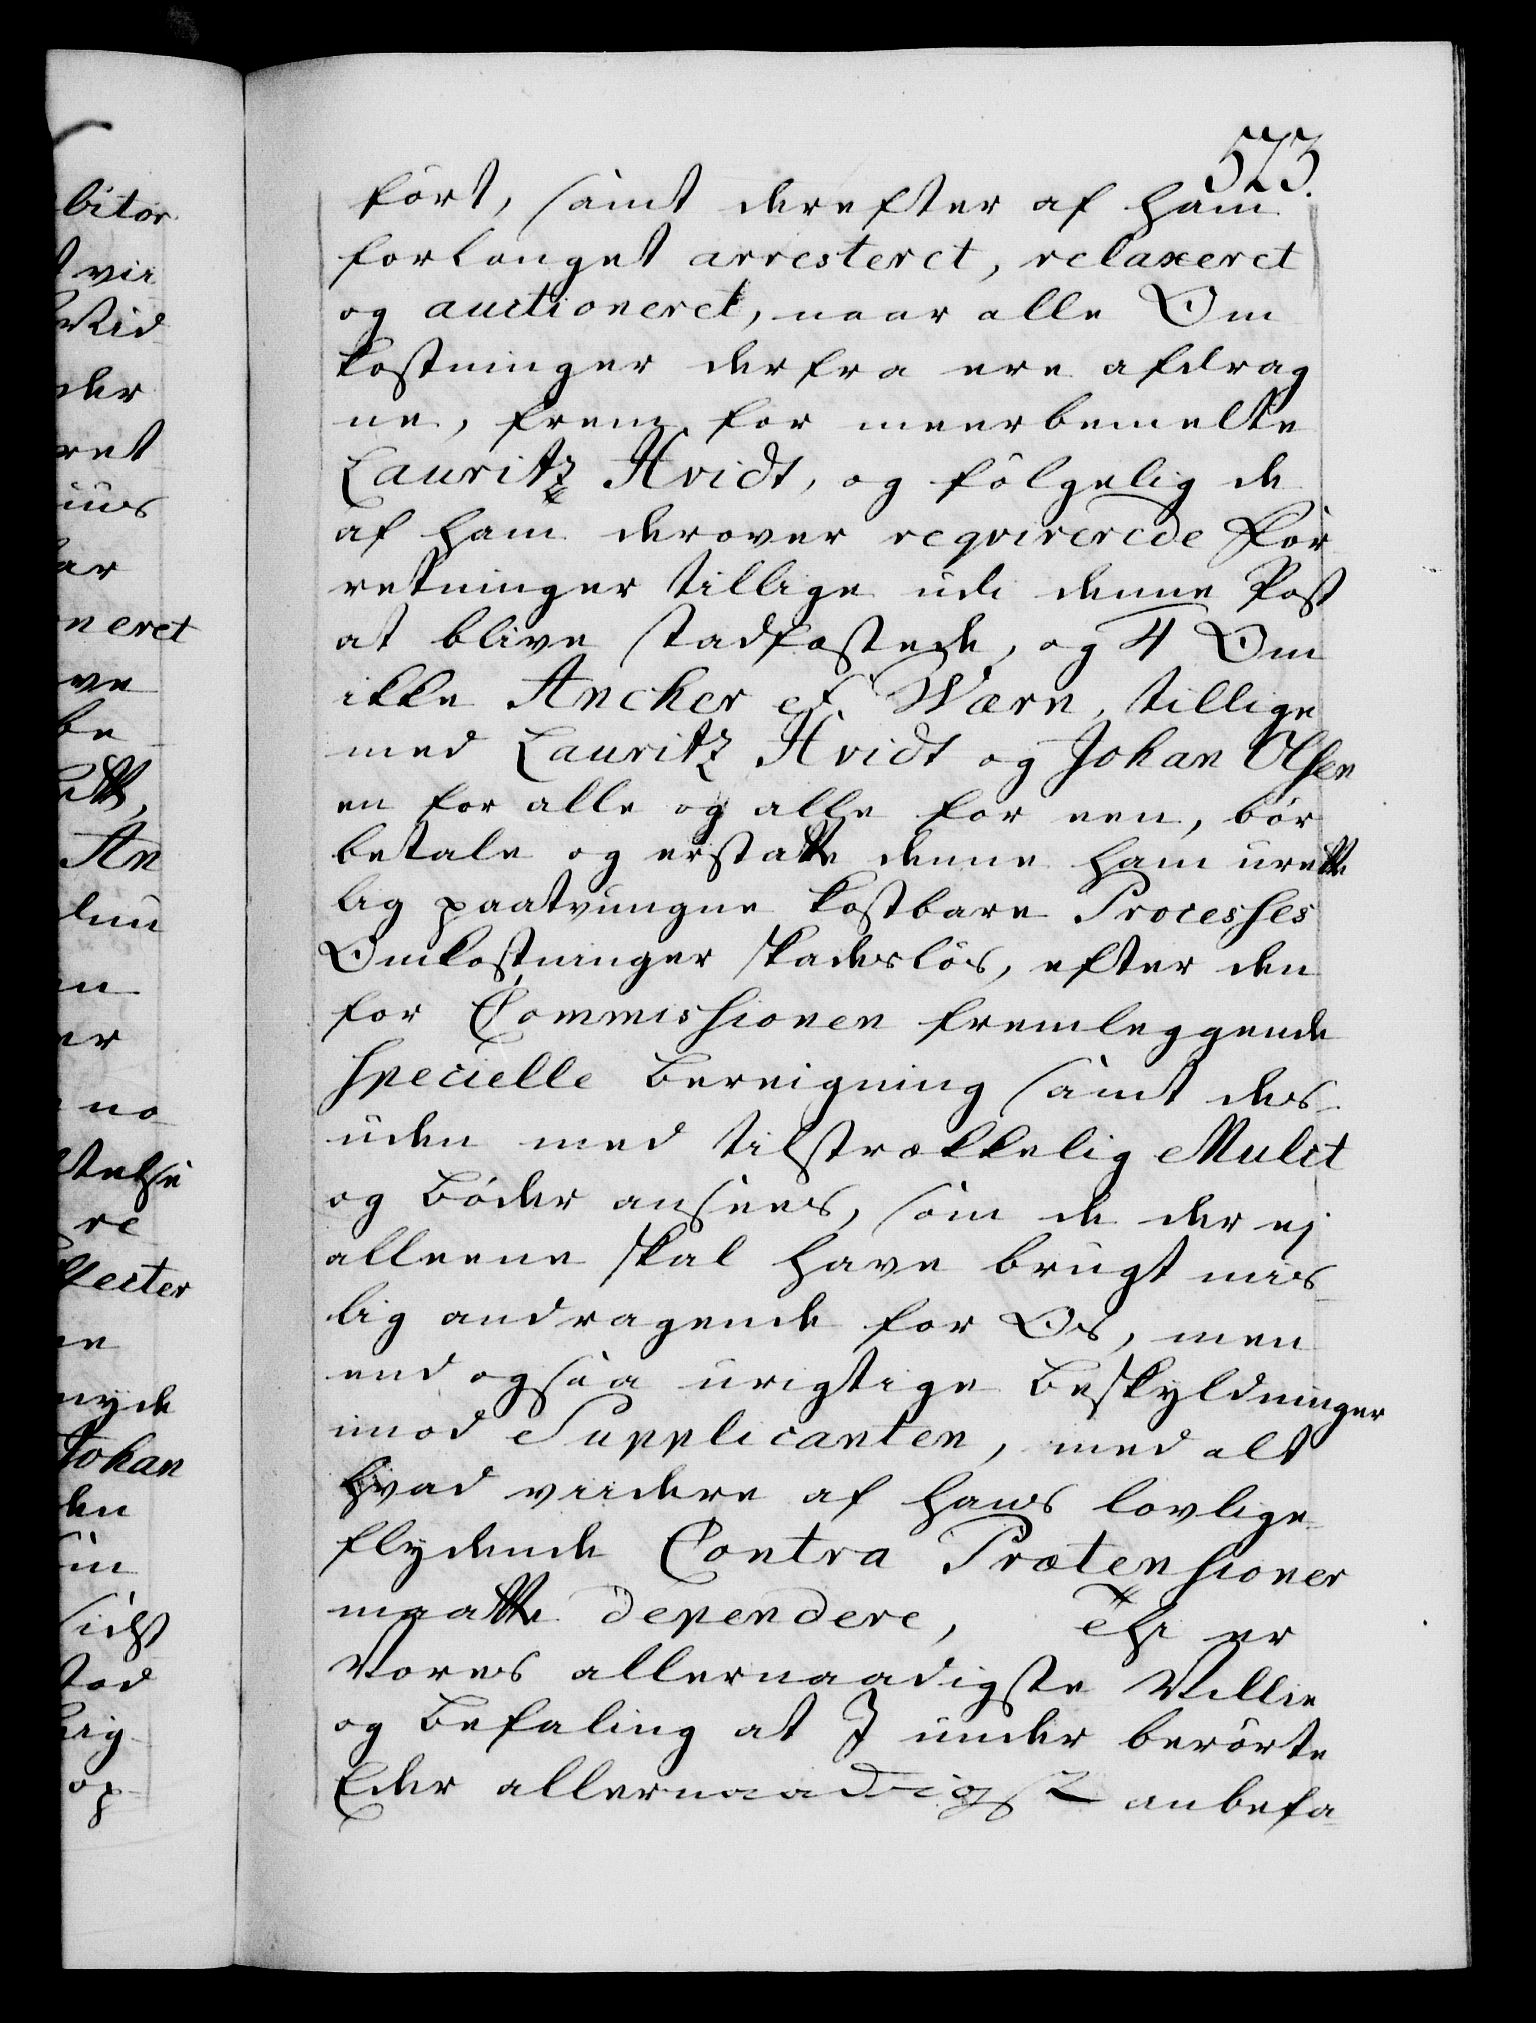 573.
ført, samt derefter af ham
forlanget arresteret, relaxeret
og auctioneret, naar alle Om
kostninger derfra ere afdrag
ne, frem for meerbemelte
Lauritz Hvidt, og følgelig de
af ham derover reqvirerede For
retninger tillige udi denne Post
at blive stadfæstede, og 4 Om
ikke Ancker et Wærn, tillige
med Lauritz Hvidt og Johan Olsen
en for alle og alle for een, bør
betale og erstatte denne ham urette
lig paatvungne kostbare Processes
Omkostninger skadesløs, efter den
for Commissionen fremleggende
specielle Bereigning samt des-
uden med tilstrækkelig Mulct
og Bøder ansees, som de der ej
alleene skal have brugt mis-
lig andragende for Os, men
end ogsaa urigtige Beskyldninger
imod Supplicanten, med alt
hvad viidere af hans lovlige-
flydende Contra Prætensioner
maatte dependere, er
Vores allernaadigste Villie
og Befaling at I under berørte
Eder allernaadigst anbefa-
bitor
vii
der
ret
ar
neret
ve
be
An
en
er
no-
telse
re
ecter
ne
nyde
Johan
den
sidst
tod
lig-
op